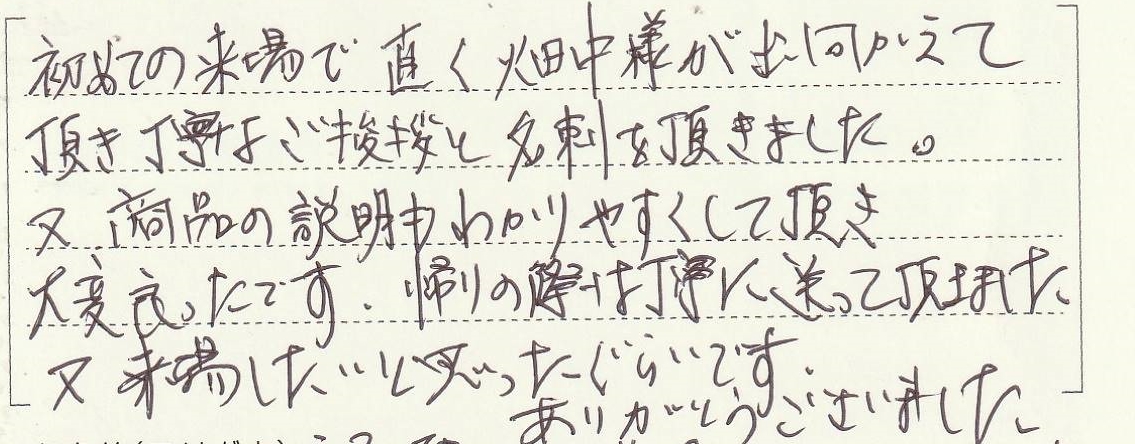 初めての来場で 直く 畑中様が出向かえて
頂き 丁寧なご挨拶と 名刺を頂きました。
又 商品の説明もわかりやすくして頂き
大変良ったです。帰りの際は丁寧に、送って頂きました
又 来場したいと思ったぐらいです。
ありがとうございました。